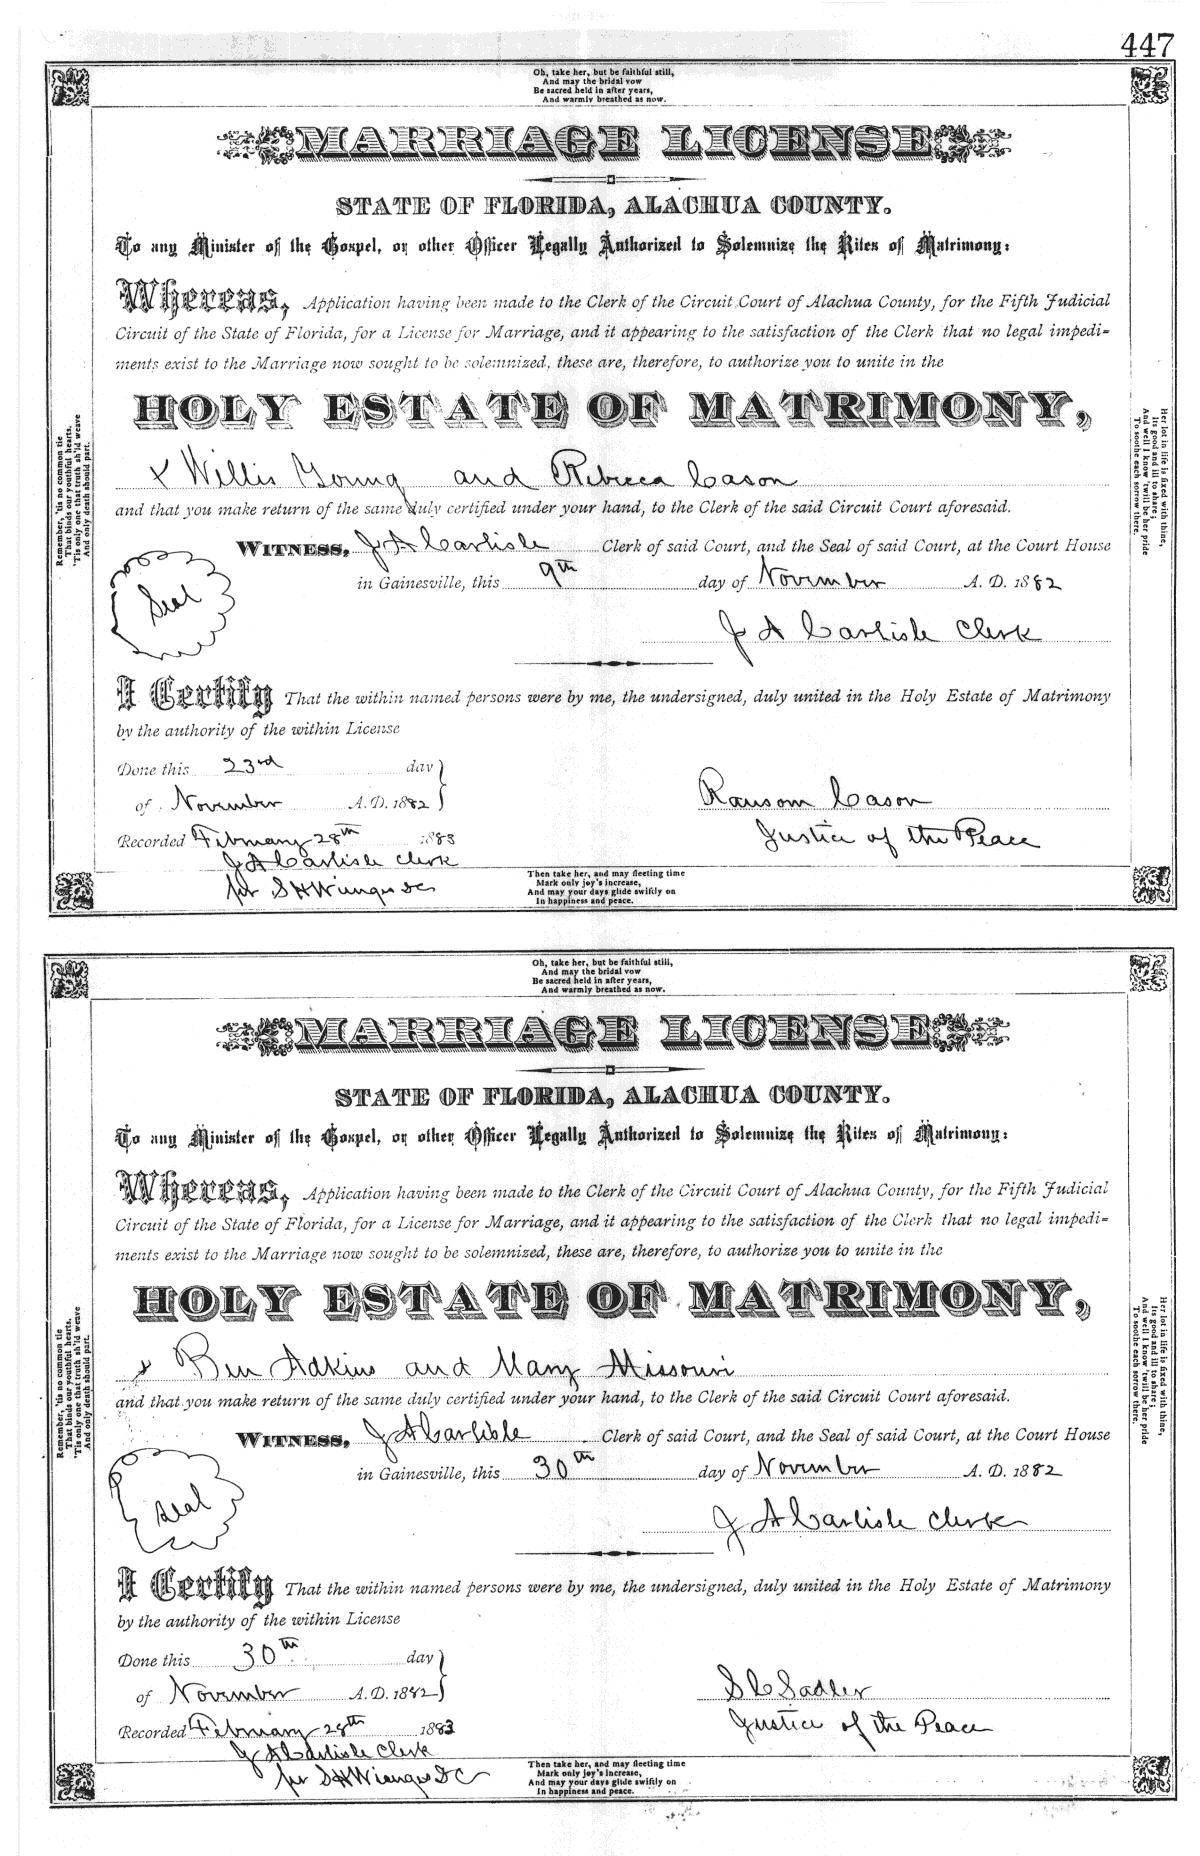 447
Oh, take her, but be faithful still,
And may the bridal vow
Be sacred held in after years,
And warmly breathed as now.
MARRIAGE LICENSE
STATE OF FLORIDA, ALACHUA COUNTY.
To any Minister of the Gospel, or other Officer Legally Authorized to Solemnize the Rites of Matrimony:
Whereas, Application having been made to the Clerk of the Circuit Court of Alachua County, for the Fifth Judicial
Circuit of the State of Florida, for a License for Marriage, and it appearing to the satisfaction of the Clerk that no legal impedi-
ments exist to the Marriage now sought to be solemnized, these are, therefore, to authorize you to unite in the
HOLY ESTATE OF MATRIMONY,
x Willis Young and Rebecca Cason
and that you make return of the same duly certified under your hand, to the Clerk of the said Circuit Court aforesaid.
WITNESS, J A Carlisle Clerk of said Court, and the Seal of said Court, at the Court House
in Gainesville, this 9th day of November A. D. 1882
Seal
J A Carlisle Clerk
I Certify That the within named persons were by me, the undersigned, duly united in the Holy Estate of Matrimony
by the authority of the within License
Done this 23rd day
of November A.D. 1882
Ransom Cason
Recorded February 28th 1883
Justice of the Peace
J A Carlisle Clerk
per S H Wienges DC
Then take her, and may fleeting time
Mark only joy's increase,
And may your days glide swiftly on
In happiness and peace.
Remember, 'tis no common tie
That binds our youthful hearts,
'Tis only one that truth sh'ld weave
And only death should part.
Her lot in life is fixed with thine,
Its good and ill to share;
And well I know 'twill be her pride
To soothe each sorrow there.
Oh, take her, but be faithful still,
And may the bridal vow
Be sacred held in after years,
And warmly breathed as now.
MARRIAGE LICENSE
STATE OF FLORIDA, ALACHUA COUNTY.
To any Minister of the Gospel, or other Officer Legally Authorized to Solemnize the Rites of Matrimony:
Whereas, Application having been made to the Clerk of the Circuit Court of Alachua County, for the Fifth Judicial
Circuit of the State of Florida, for a License for Marriage, and it appearing to the satisfaction of the Clerk that no legal impedi-
ments exist to the Marriage now sought to be solemnized, these are, therefore, to authorize you to unite in the
HOLY ESTATE OF MATRIMONY,
x Ben Adkins and Mary Missouri
and that you make return of the same duly certified under your hand, to the Clerk of the said Circuit Court aforesaid.
WITNESS, J A Carlisle Clerk of said Court, and the Seal of said Court, at the Court House
in Gainesville, this 30th day of November A. D. 1882
Seal
J A Carlisle Clerk
I Certify That the within named persons were by me, the undersigned, duly united in the Holy Estate of Matrimony
by the authority of the within License
Done this 30th day
of November A.D. 1882
S C Sadler
Recorded February 28th 1883
Justice of the Peace
J A Carlisle Clerk
per S H Wienges DC
Then take her, and may fleeting time
Mark only joy's increase,
And may your days glide swiftly on
In happiness and peace.
Remember, 'tis no common tie
That binds our youthful hearts,
'Tis only one that truth sh'ld weave
And only death should part.
Her lot in life is fixed with thine,
Its good and ill to share;
And well I know 'twill be her pride
To soothe each sorrow there.